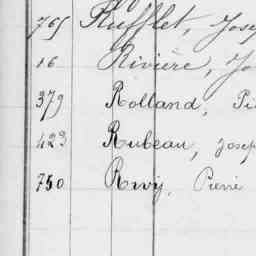 765 Rufflet, Jose
16 Rivière, Jo
379 Rolland, Pi
423 Rubeau, Josep
750 Pierre